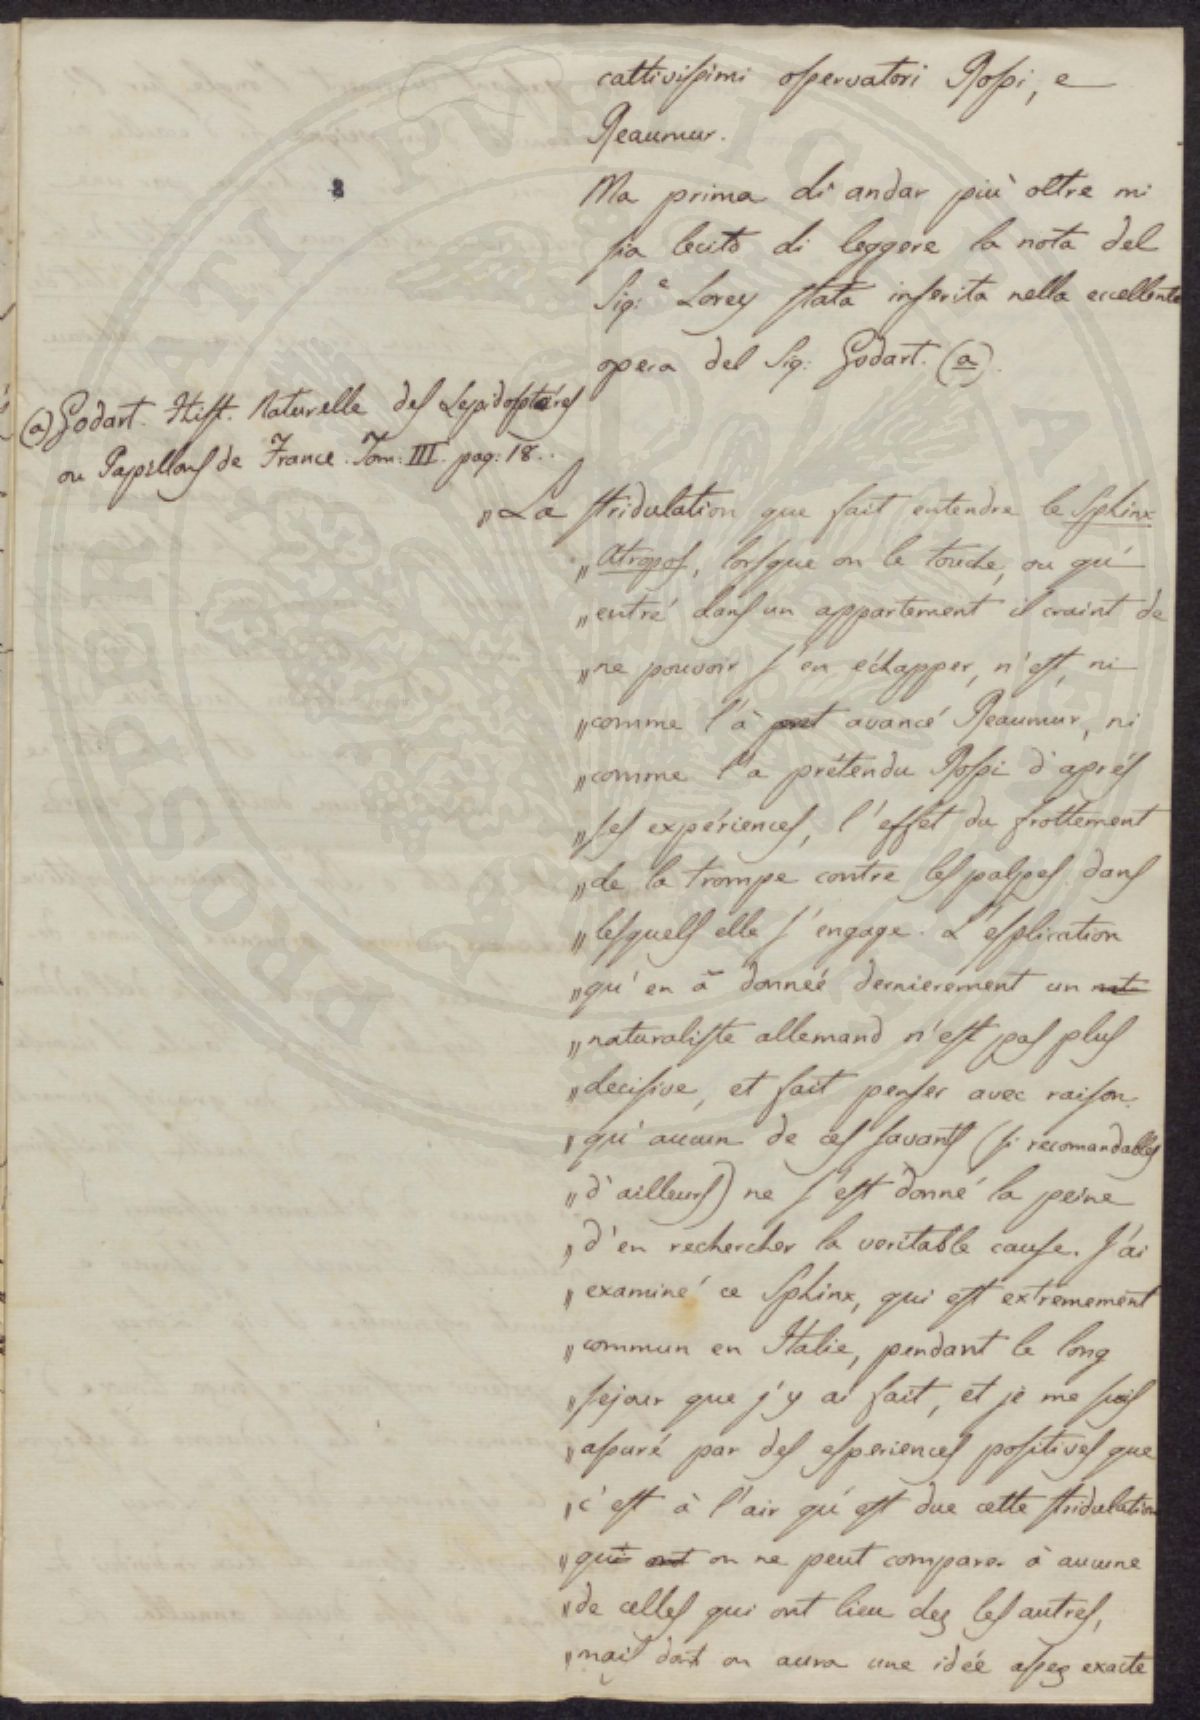 cattivissimi osservatori Rossi, e
Reaumur.
8
Ma prima di andar più oltre mi
sia lecito di leggere la nota del
Sig:e Lorey stata inserita nella eccellente
opera del Sig: Godart. (a).
(a) Godart. Hist. Naturelle des Lepidoptéres
ou Papillons de France. Tom: III. pag: 18..
"La stridulation que fait entendre le Sphinx
"Atropos, lorsque on le touche, ou qu'
"entré dans un appartement il craint de
"ne pouvoir s'en échapper, n'est, ni
"comme l'à avancé Reaumur, ni
"comme l'a prétendu Rossi d'aprés
"ses expériences, l'effet du frottement
"de la trompe contre les palpes dans
"lesquels elle s'engage. L'esplication
"qu'en à donneé dernierement un nat
"naturaliste allemand n'est pas plus
"decisive, et fait penser avec raison
"qu'aucun de ces savants (si recomandables
"d'ailleurs) ne s'est donné la peine
"d'en rechercher la veritable cause. J'ai
"examiné ce Sphinx, qui est extremement
"commun en Italie, pendant le long
"sejour que j'y ai fait, et je me suis
"assuré par des esperiences positives que
"c'est à l'air qu'est due cette stridulation
"qui ont on ne peut comparer à aucune
"de celles qui ont lieu dez les autres,
"mais dont on aura une idée assez exacte
PROSPERITATI PVBLICAE AVGENDAE